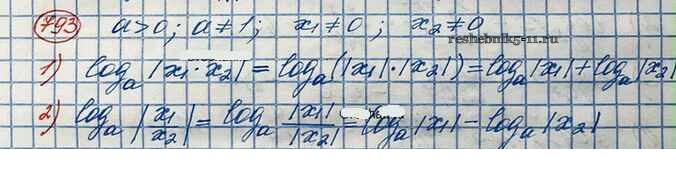 793 a>0; a≠1; x₁≠0; x₂≠0
reshebnik5-11.ru
1) logₐ|x₁·x₂| = logₐ(|x₁|·|x₂|) = logₐ|x₁| + logₐ|x₂|
2) logₐ|x₁/x₂| = logₐ |x₁|/|x₂| = logₐ|x₁| − logₐ|x₂|